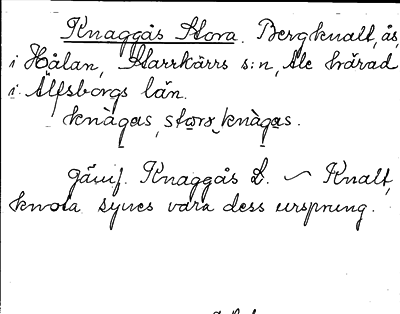 Knaggås Stora. Bergknalt, ås,
i Hålan, Starrkärrs s:n, Ale härad
i Älfsborgs län.
knàgas, stora knàgas.
Jämf. Knaggås L. ~ Knalt,
knota synes vara dess ursprung.